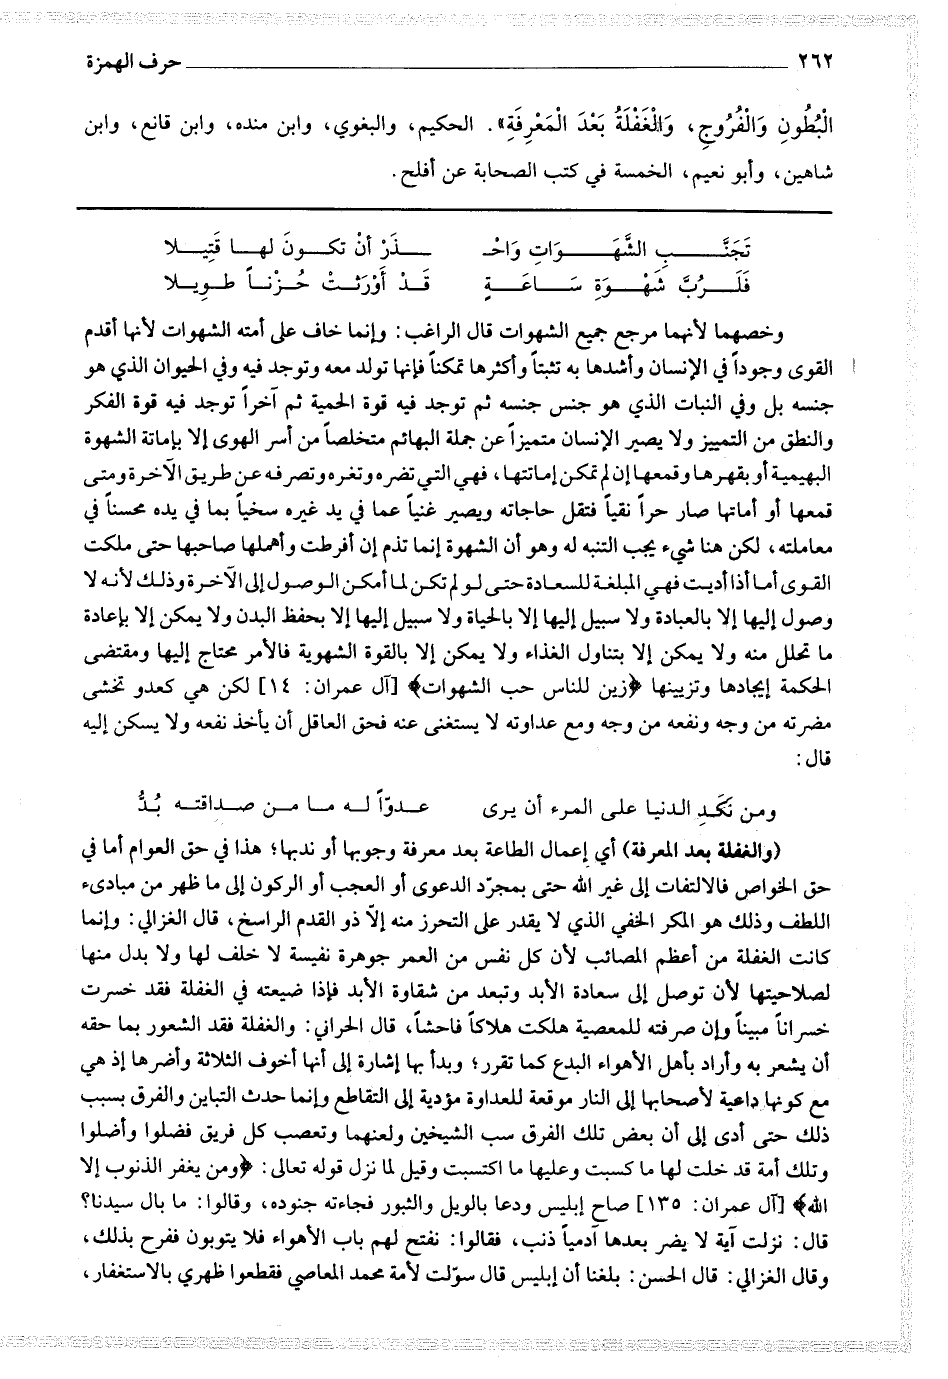 ٢٦٢ حرف الهمزة
الْبُطُونِ وَالْفُرُوجِ، وَالْغَفْلَةُ بَعْدَ الْمَعْرِفَةِ». الحكيم، والبغوي، وابن منده، وابن قانع، وابن
شاهين، وأبو نعيم، الخمسة في كتب الصحابة عن أفلح.
تَجَنَّـــبِ الشَّهَـــوَاتِ وَاحْـ ــــذَرْ أنْ تكـــونَ لهـــا قَتِيـــلا
فَلَـــرُبَّ شَهْـــوَةِ سَـــاعَـــةٍ قَـــدْ أَوْرَثَـــتْ حُـــزْنـــاً طـــويـــلا
وخصهما لأنهما مرجع جميع الشهوات قال الراغب: وإنما خاف على أمته الشهوات لأنها أقدم
القوى وجوداً في الإنسان وأشدها به تثبتاً وأكثرها تمكناً فإنها تولد معه وتوجد فيه وفي الحيوان الذي هو
جنسه بل وفي النبات الذي هو جنس جنسه ثم توجد فيه قوة الحمية ثم آخراً توجد فيه قوة الفكر
والنطق من التمييز ولا يصير الإنسان متميزاً عن جملة البهائم متخلصاً من أسر الهوى إلا بإماتة الشهوة
البهيمية أو بقهرها وقمعها إن لم تمكن إماتتها، فهي التي تضره وتغره وتصرفه عن طريق الآخرة ومتى
قمعها أو أماتها صار حراً نقياً فتقل حاجاته ويصير غنياً عما في يد غيره سخياً بما في يده محسناً في
معاملته، لكن هنا شيء يجب التنبه له وهو أن الشهوة إنما تذم إن أفرطت وأهملها صاحبها حتى ملكت
القوى أما أذا أديت فهي المبلغة للسعادة حتى لو لم تكن لما أمكن الوصول إلى الآخرة وذلك لأنه لا
وصول إليها إلا بالعبادة ولا سبيل إليها إلا بالحياة ولا سبيل إليها إلا بحفظ البدن ولا يمكن إلا بإعادة
ما تحلل منه ولا يمكن إلا بتناول الغذاء ولا يمكن إلا بالقوة الشهوية فالأمر محتاج إليها ومقتضى
الحكمة إيجادها وتزيينها ﴿زين للناس حب الشهوات﴾ [آل عمران: ١٤] لكن هي كعدو تخشى
مضرته من وجه ونفعه من وجه ومع عداوته لا يستغنى عنه فحق العاقل أن يأخذ نفعه ولا يسكن إليه
قال:
ومن نَكَدِ الدنيا على المرء أن يرى عـدوّاً لـه مـا مـن صـداقتـه بُـدُّ
(والغفلة بعد المعرفة) أي إعمال الطاعة بعد معرفة وجوبها أو ندبها؛ هذا في حق العوام أما في
حق الخواص فالالتفات إلى غير الله حتى بمجرّد الدعوى أو العجب أو الركون إلى ما ظهر من مبادىء
اللطف وذلك هو المكر الخفي الذي لا يقدر على التحرز منه إلاّ ذو القدم الراسخ، قال الغزالي: وإنما
كانت الغفلة من أعظم المصائب لأن كل نفس من العمر جوهرة نفيسة لا خلف لها ولا بدل منها
لصلاحيتها لأن توصل إلى سعادة الأبد وتبعد من شقاوة الأبد فإذا ضيعته في الغفلة فقد خسرت
خسراناً مبيناً وإن صرفته للمعصية هلكت هلاكاً فاحشاً، قال الحراني: والغفلة فقد الشعور بما حقه
أن يشعر به وأراد بأهل الأهواء البدع كما تقرر؛ وبدأ بها إشارة إلى أنها أخوف الثلاثة وأضرها إذ هي
مع كونها داعية لأصحابها إلى النار موقعة للعداوة مؤدية إلى التقاطع وإنما حدث التباين والفرق بسبب
ذلك حتى أدى إلى أن بعض تلك الفرق سب الشيخين ولعنهما وتعصب كل فريق فضلوا وأضلوا
وتلك أمة قد خلت لها ما كسبت وعليها ما اكتسبت وقيل لما نزل قوله تعالى: ﴿ومن يغفر الذنوب إلا
الله﴾ [آل عمران: ١٣٥] صاح إبليس ودعا بالويل والثبور فجاءته جنوده، وقالوا: ما بال سيدنا؟
قال: نزلت آية لا يضر بعدها آدمياً ذنب، فقالوا: نفتح لهم باب الأهواء فلا يتوبون ففرح بذلك،
وقال الغزالي: قال الحسن: بلغنا أن إبليس قال سوّلت لأمة محمد المعاصي فقطعوا ظهري بالاستغفار،